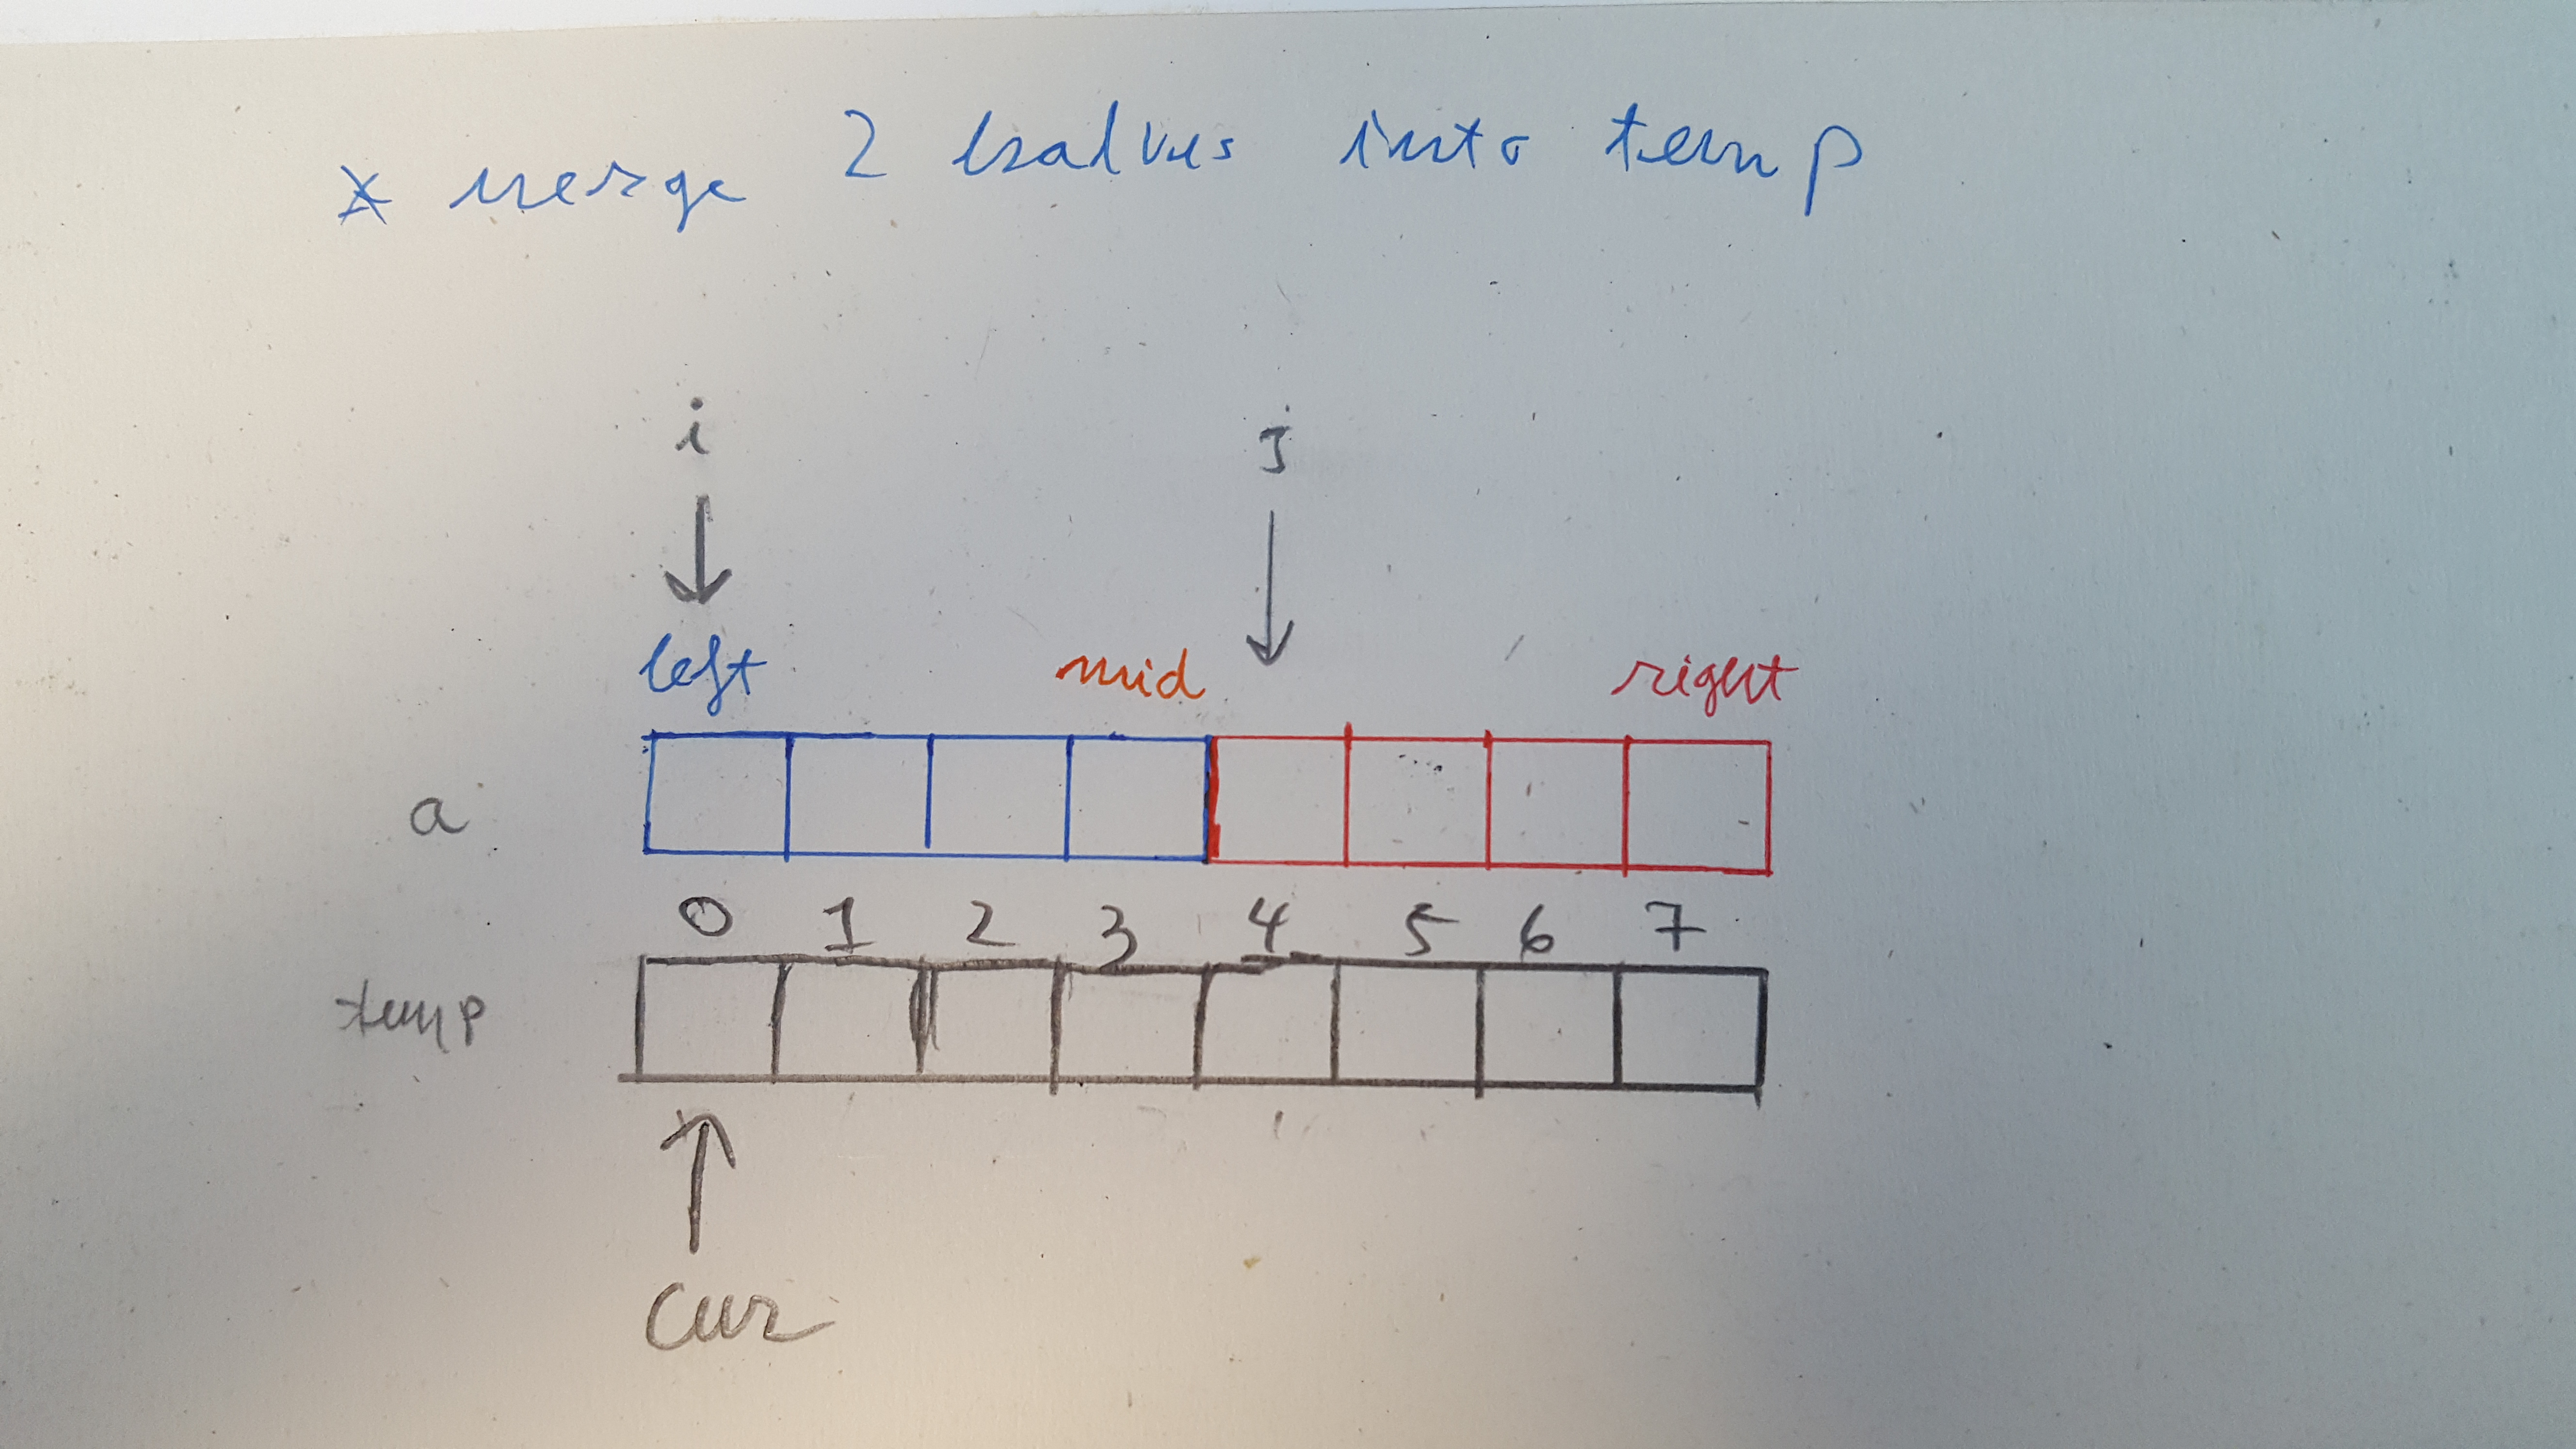 * merge 2 halves into temp
i j
left mid right
a
0 1 2 3 4 5 6 7
temp
cur